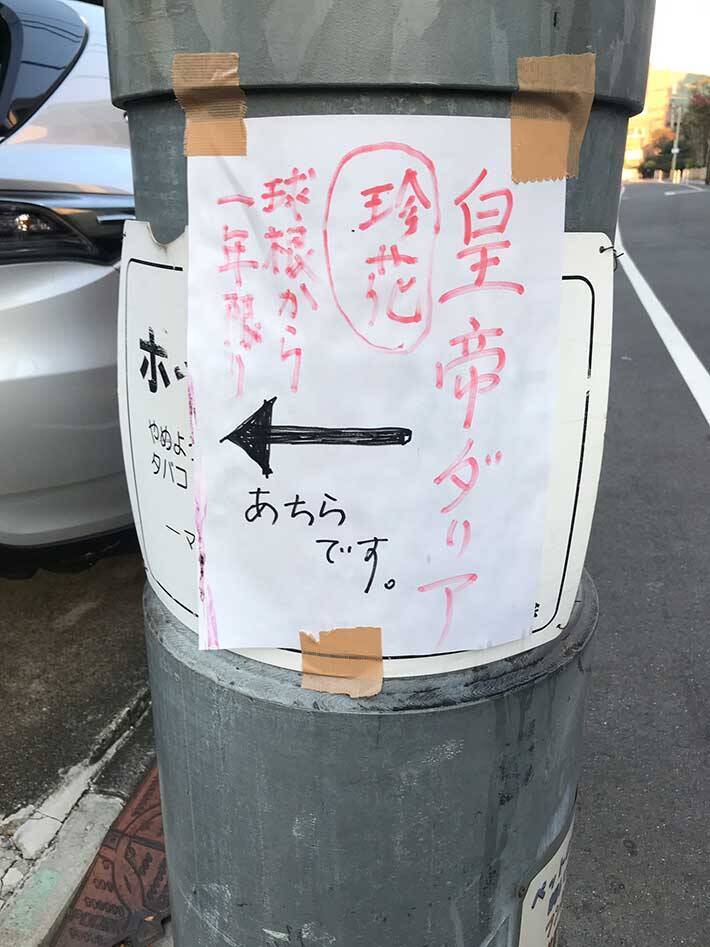 皇帝ダリア
珍花
球根から
一年限り
あちら
です。
ホ
やめよ
タバコ
ーマ
ペット